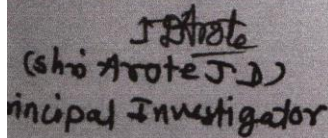 JDArote
(shri Arote J D)
incipal Investigator